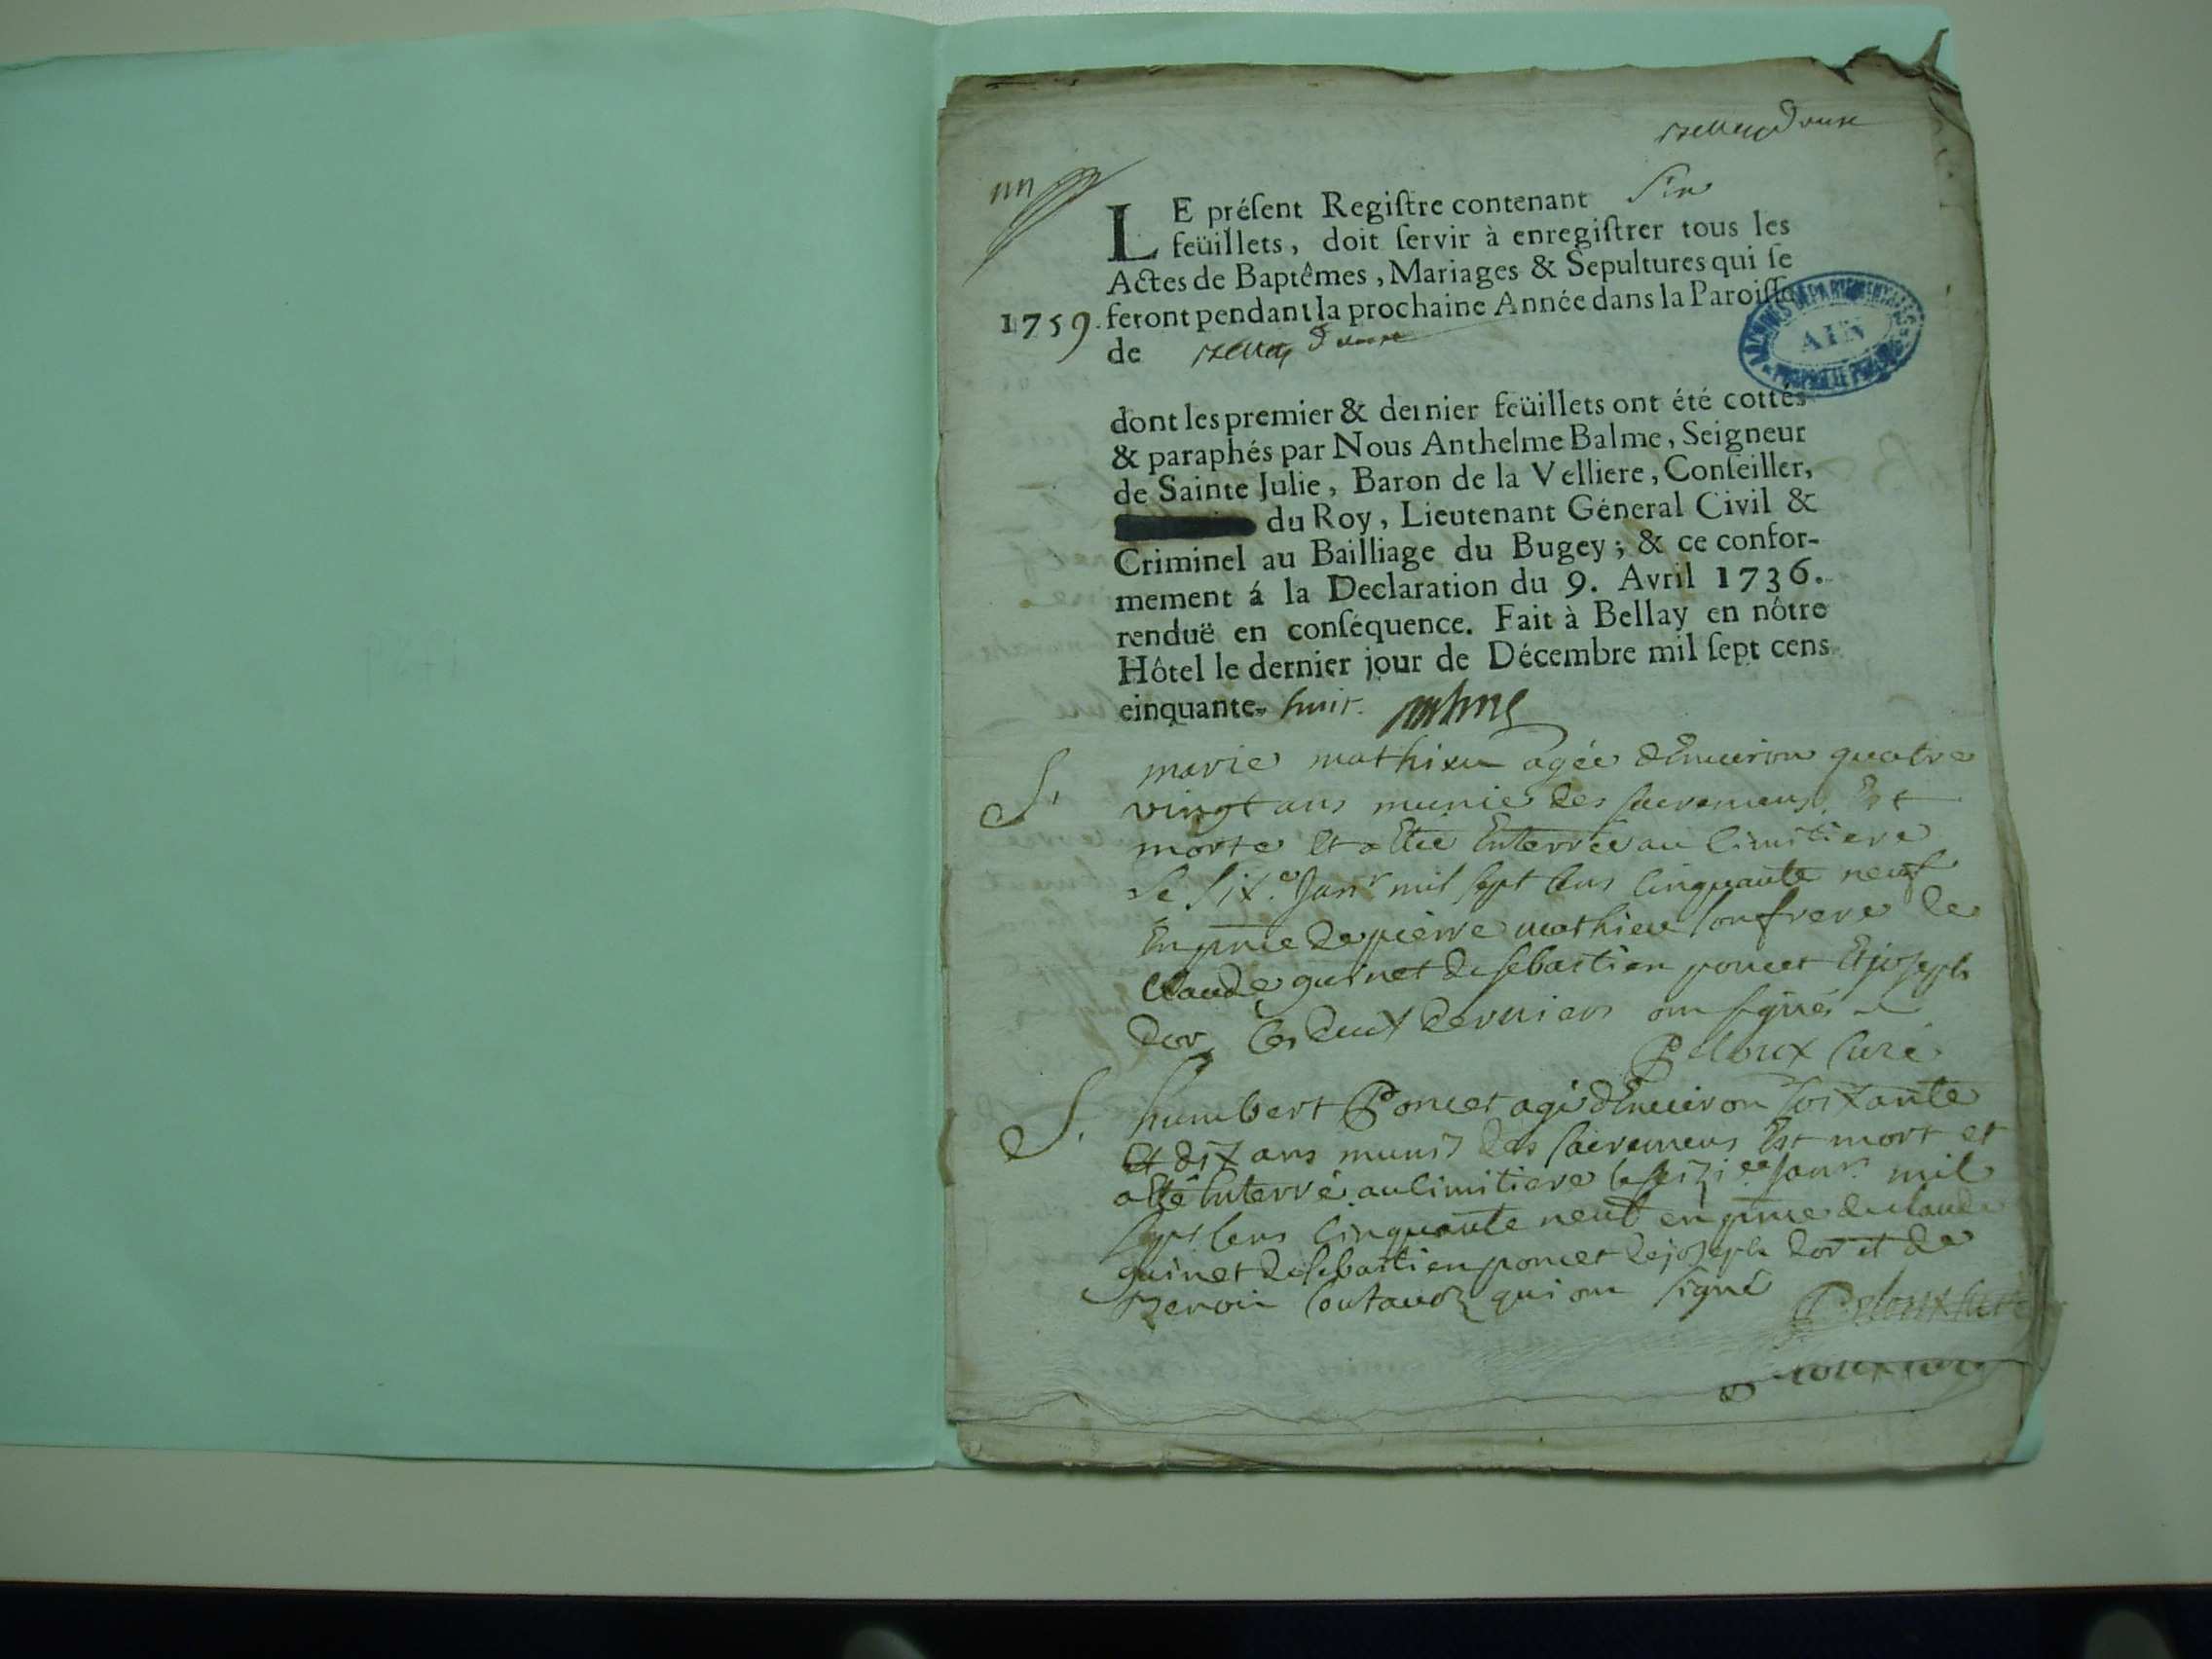 LE préſent Regiſtre contenant Six
feüillets, doit ſervir à enregiſtrer tous les
Actes de Baptêmes, Mariages & Sepultures qui ſe
1759. feront pendant la prochaine Année dans la Paroiſſe
de
ARCHIVES DEPARTEMENTALES
AIN
dont les premier & dernier feüillets ont été cottés
& paraphés par Nous Anthelme Balme, Seigneur
de Sainte Julie, Baron de la Velliere, Conſeiller,
du Roy, Lieutenant Géneral Civil &
Criminel au Bailliage du Bugey; & ce confor-
mement á la Declaration du 9. Avril 1736.
renduë en conſéquence. Fait à Bellay en nôtre
Hôtel le dernier jour de Décembre mil ſept cens
einquante- huit.
S. marie mathieu agée d'Enuiron quatre
vingt ans munie des sacremens Est
morte Et a Eté Enterrée au Cimitiere
le six.e Janr mil sept Cens Cinquante neuf
En pnce de pierre mathieu son frere de
Claude guinet de sebastien poncet Et joseph
dor, les deux derniers ont signés
Peloux Curé
S. humbert Poncet agé d'Enuiron soixante
Et dix ans muni des sacremens Est mort et
a Eté Enterré au Cimitiere le janr mil
sept Cens Cinquante neuf en pnce de claude
guinet de sebastien poncet de joseph dor et de
qui ont signé
Peloux Curé